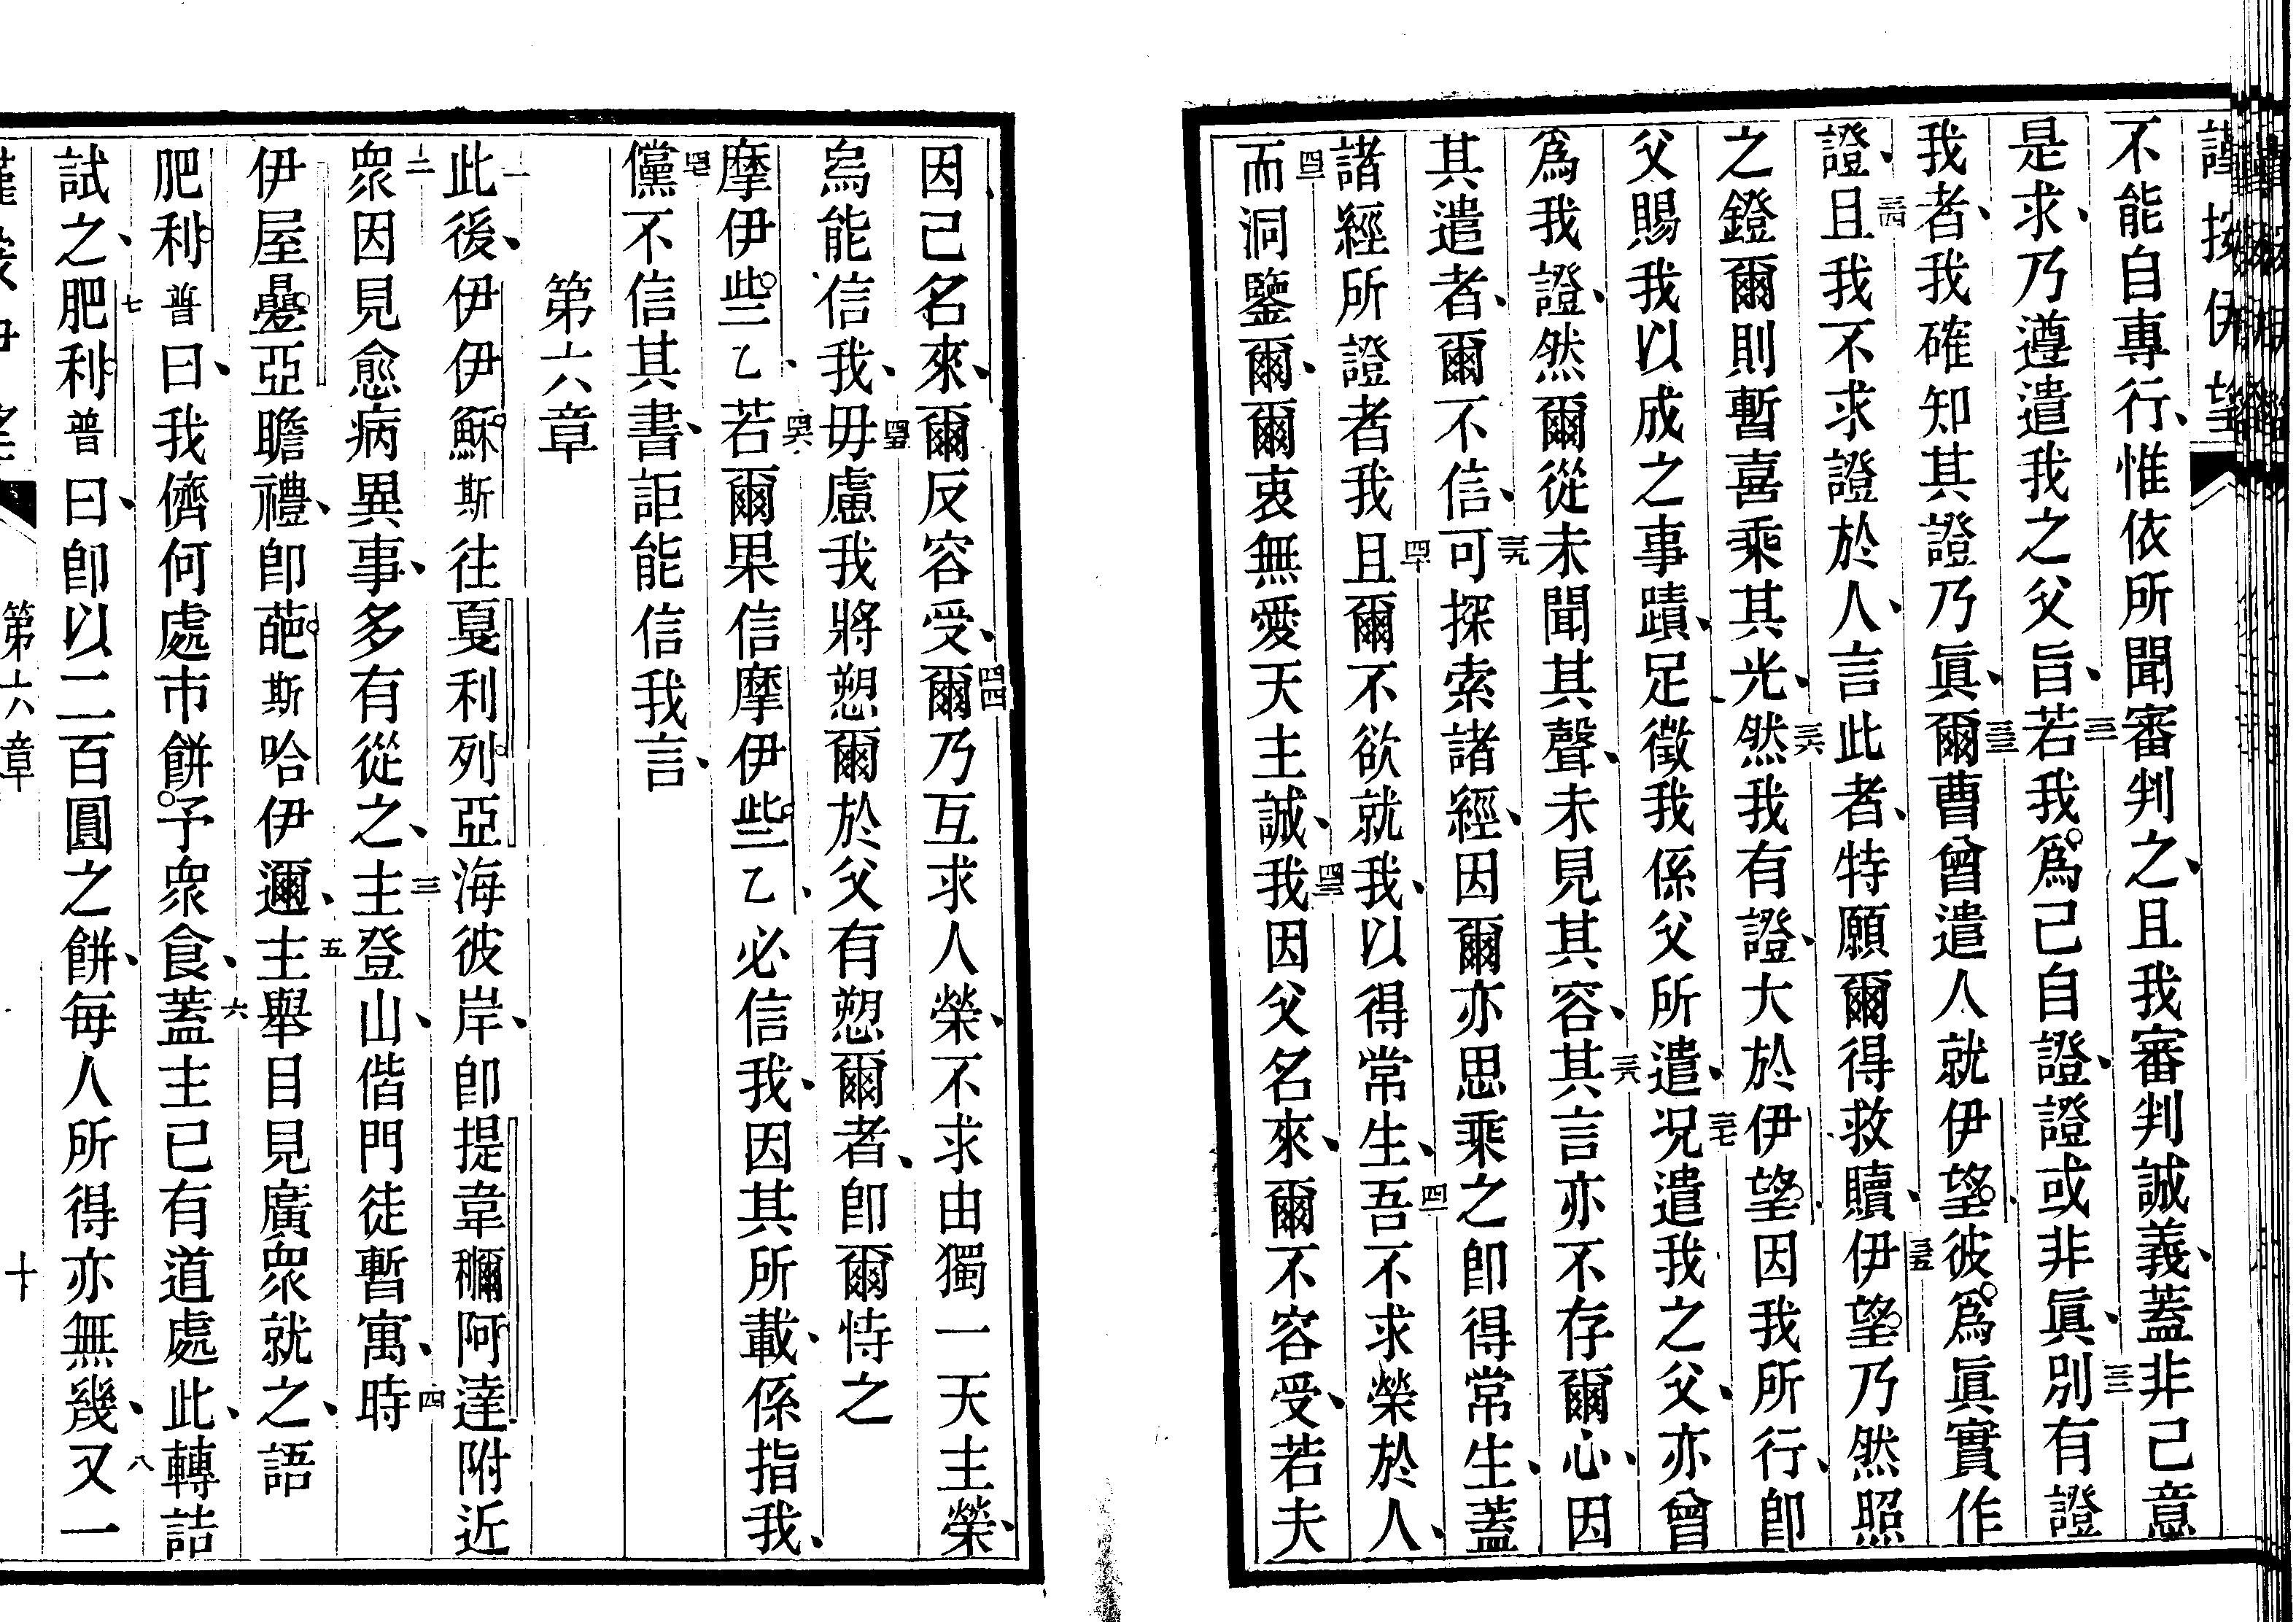 謹按伊望
不能自專行、惟依所聞審判之、且我審判誠義、蓋非己意
是求、乃遵遣我之父旨、三一若我爲己自證、證或非眞、三二別有證
我者、我確知其證乃眞、三三爾曹曾遣人就伊望、彼爲眞實作
證、三四且我不求證於人、言此者、特願爾得救贖、三五伊望乃然照
之鐙爾則暫喜乘其光、三六然我有證、大於伊望、因我所行、卽
父賜我以成之事蹟、足徵我係父所遣、三七况遣我之父、亦曾
爲我證、然爾從未聞其聲、未見其容、三八其言亦不存爾心、因
其遣者、爾不信、三九可探索諸經、因爾亦思乘之卽得常生、蓋
諸經所證者我、四十且爾不欲就我、以得常生、四一吾不求榮於人、
四二而洞鑒爾、爾衷無愛天主誠、四三我因父名來、爾不容受、若夫
因己名來、爾反容受、四四爾乃互求人榮、不求由獨一天主榮、
烏能信我、四五毋慮我將愬爾於父、有愬爾者、卽爾恃之
摩伊些乙、四六若爾果信摩伊些乙、必信我、因其所載、係指我、
四七儻不信其書、詎能信我言、
第六章
一此後、伊伊穌斯往戛利列亞海彼岸、卽提韋穪阿達附近
二衆因見愈病異事、多有從之、三主登山、偕門徒暫寓、四時
伊屋㬪亞瞻禮、卽葩斯哈伊邇、五主舉目見廣衆就之、語
肥利普曰、我儕何處市餅予衆食、六蓋主已有道處此、轉詰
試之、七肥利普曰、卽以二百圓之餅、每人所得亦無幾、八又一
第六章
十